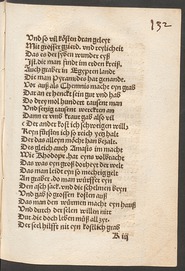 132
Und so vil kösten dran geleyt
Mit grosser gzierd, und reylicheit
Das es der syben wunder eyß
Jst die man findt im erden kreiß,
Auch gräber in Egypten landt
Die man Pyramides hat genant,
Vor auß als Chemnis macht eyn grab
Dar an er henckt sein gut und hab
Do drey mol hundert tusent man
Und sechtzig tusent werckten an
Dann er umb kraut gab also vil
Der ander kost ich schweigen will
Keyn fürsten ich so reich yetz halt
Der das alleyn möcht han bezalt
Des gleich auch Amasis im macht
Wie Rhodope hat eyns volbracht
Das was eyn groß dorheyt der welt
Das man leidt eyn so mechtig gelt
An gräber, do man würfft eyn
Den äsch sack, und die schelmen beyn
Und gab so grossen kosten auß
Das man den würmen macht eyn hauß
Und durch der selen willen nitt
Dut die doch leben müß all zyt
Der seel hilfft nit eyn kostlich grab
B iij